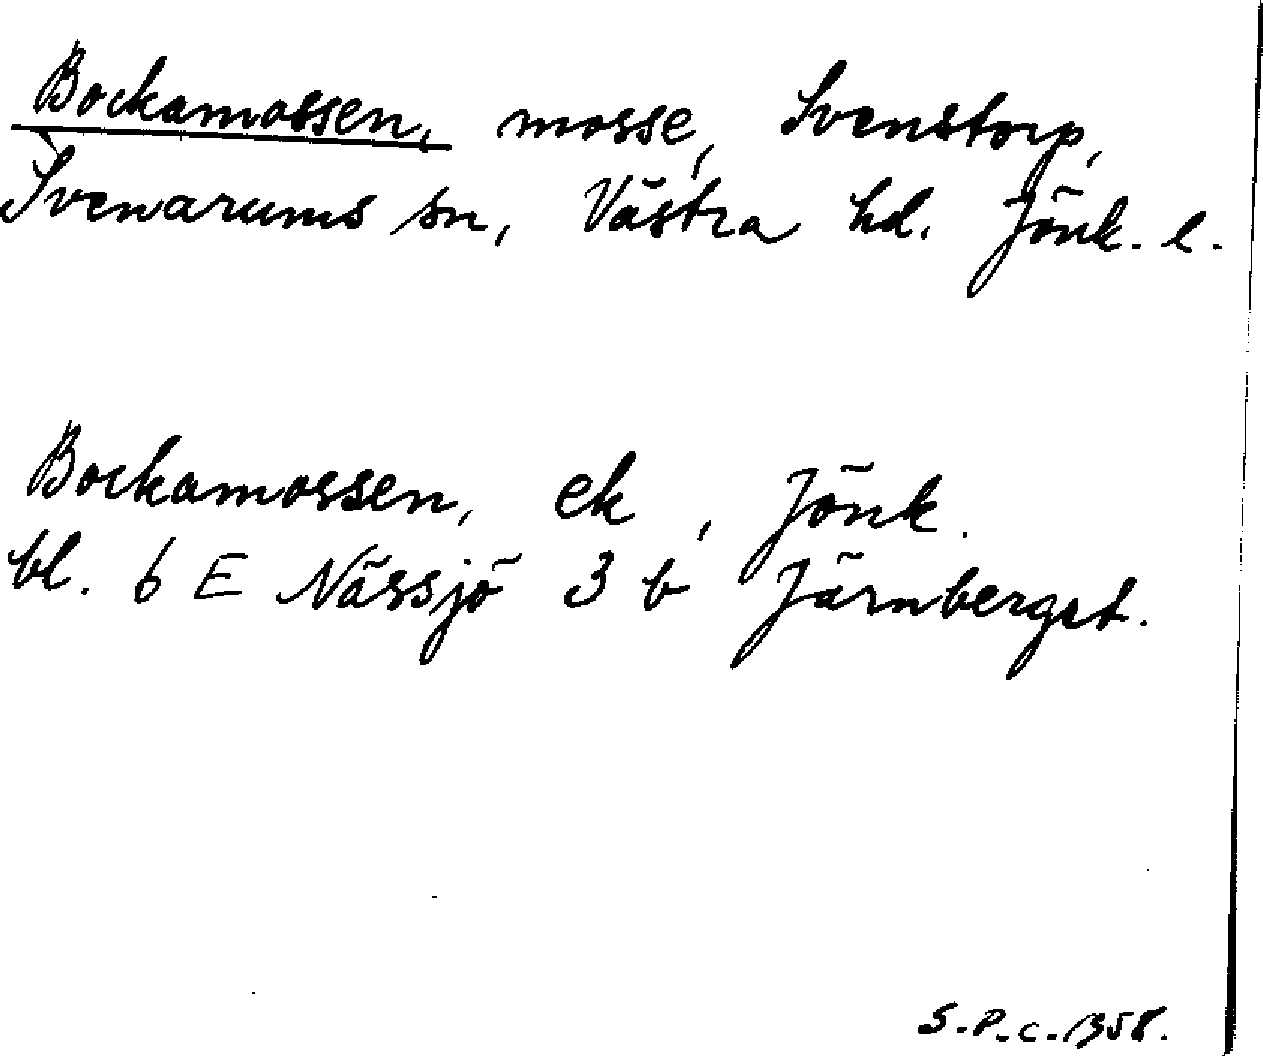 Bockamossen, mosse, Svenstorp,
Svenarums sn, Västra hd. Jönk. l.
Bockamossen, ek, Jönk.
bl. 6 E Nässjö 3 b Järnberget.
S.P.C. 1958.